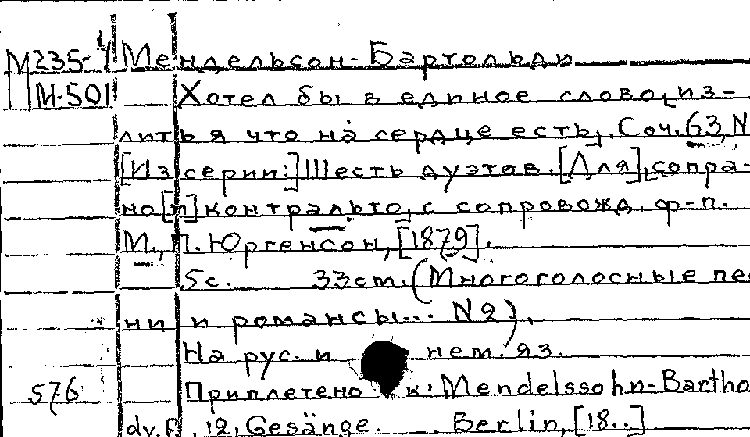 М235-1/ Мендельсон-Бартольди
М-501 Хотел бы в единое слово[из-
лить я что на сердце есть]. Соч. 63, N
[Из серии:] Шесть дуэтов. [Для] сопра-
но [и] контральто, с сопровожд. ф-п.
М., П. Юргенсон, [1879].
5с. 33см. (Многоголосные пес
ни и романсы... N2).
На рус. и нем. яз.
576 Приплетено к: Mendelssohn-Bartho
dy. F. 12 Gesänge. Berlin, [18..]